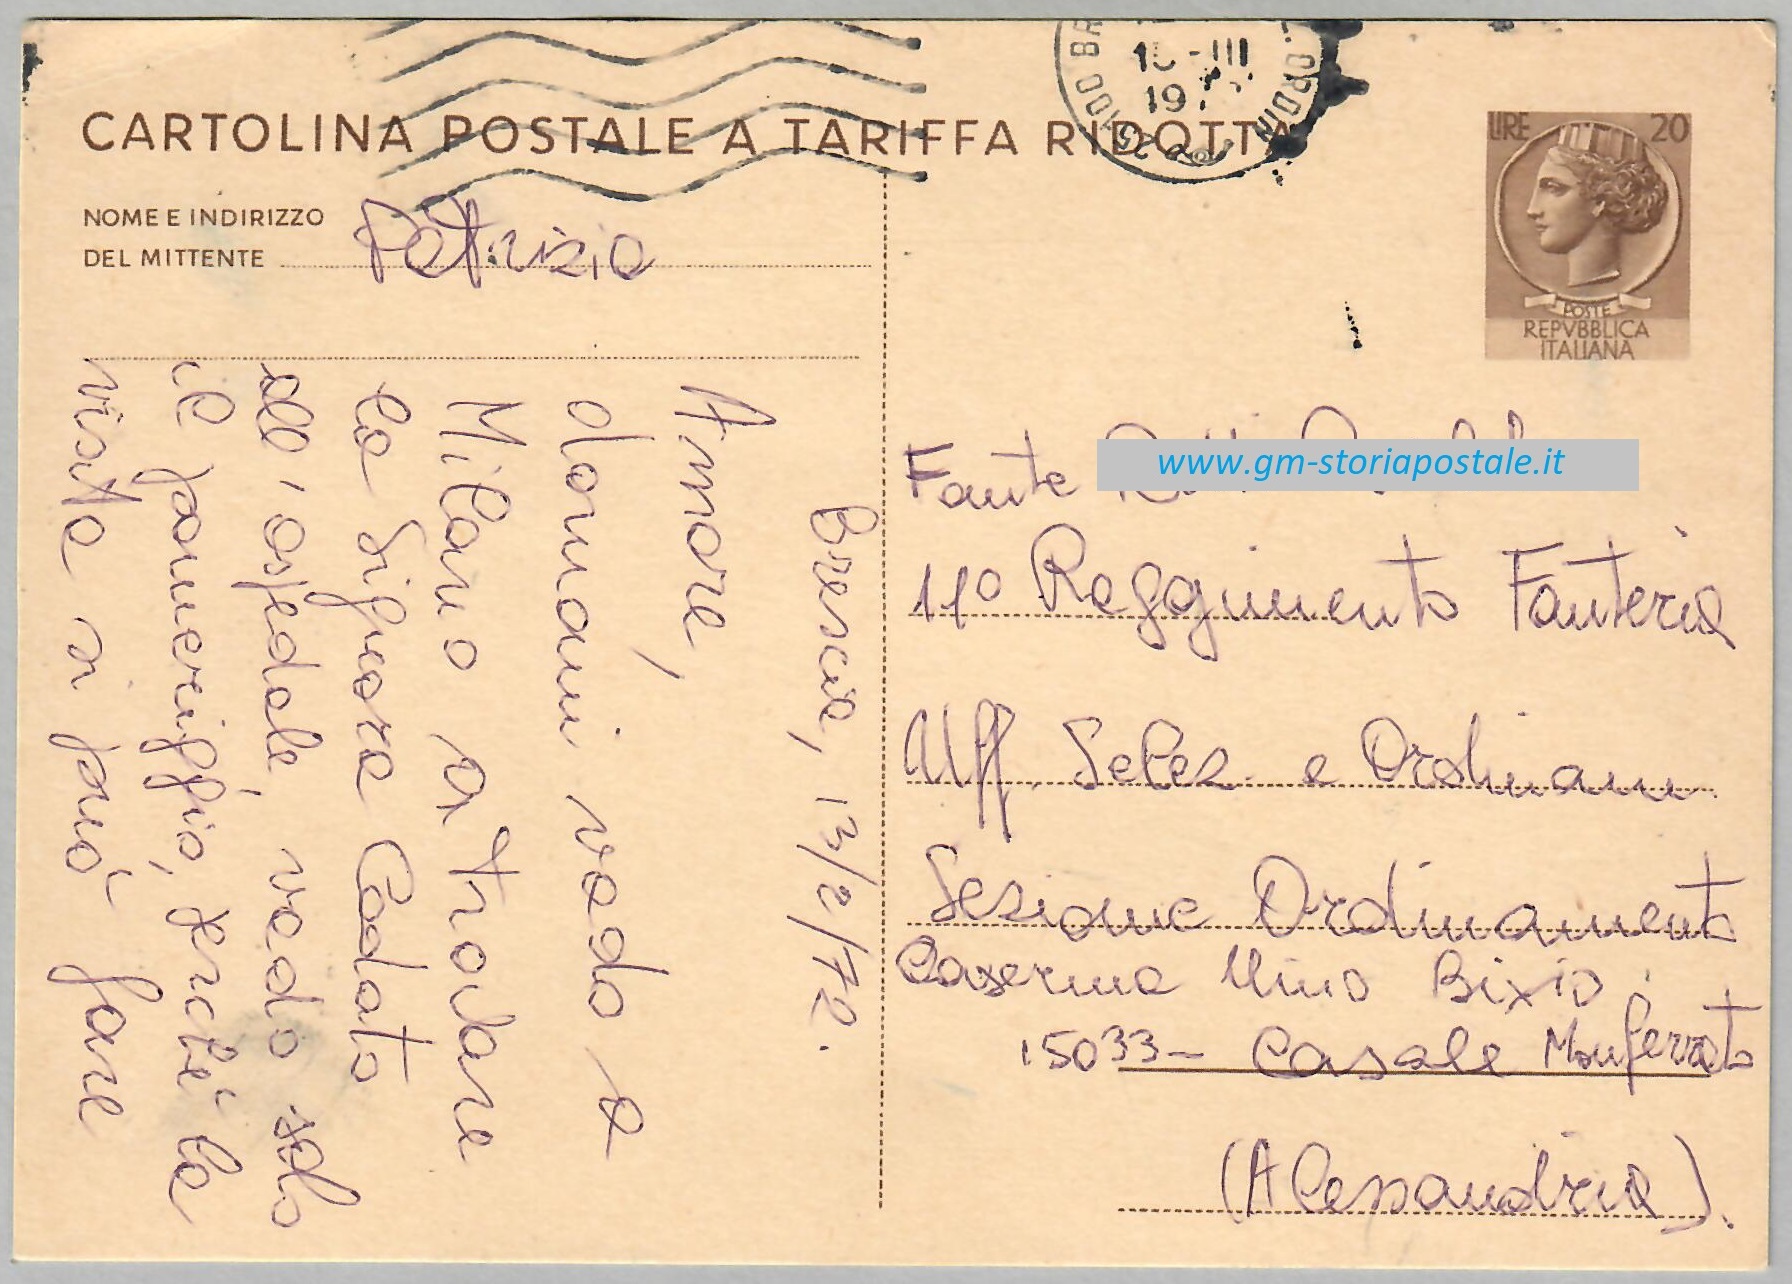 CARTOLINA POSTALE A TARIFFA RIDOTTA
NOME E INDIRIZZO
DEL MITTENTE Patrizia
LIRE 20
POSTE
REPVBBLICA
ITALIANA
-III
19
ORDIN
Brescia, 13/2/72.
Amore,
domani vado a
Milano a trovare
la Signora Codato
all'ospedale, vado solo
il pomeriggio, perchè la
visita si può fare
www.gm-storiapostale.it
Fante
11° Reggimento Fanteria
Uff. Selez. e Ordinam.
Sezione Ordinamento
Caserma Nino Bixio
15033- Casale Monferrato
(Alessandria).